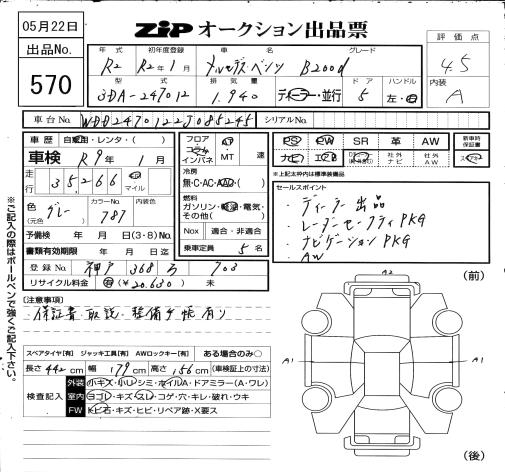 05月22日
ZIP オークション出品票
出品No.
570
年式 初年度登録 車名 グレード
R2 R2年1月 メルセデス・ベンツ B200d
型式 排気量 ドア ハンドル
3DA-247012 1.940 ディーラー・並行 5 左・右
評価点
4.5
内装
A
車台No. WDD2470122J085245 シリアルNo.
車歴 自家用・レンタ・( )
車検 R9年1月
走行 35,266 km マイル
色 (元色) グレー カラーNo. 787 内装色
予備検 年 月 日(3・8)No.
書類有効期限 年 月 日迄
登録No. 神戸 368 ろ 703
リサイクル料金 有(¥20.630) 未
フロア コラム インパネ AT MT 速
冷房 無・C・AC・AAC・( )
燃料 ガソリン・軽油・電気・その他( )
Nox 適合・非適合
乗車定員 5名
PS PW SR 革 AW 新車時保証書
ナビ エアB 社外ナビ 社外AW
*上記太枠内は標準装備品
セールスポイント
・ディーラー出品
・レーダーセーフティPKG
・ナビゲーションPKG
・AW
[注意事項]
・保証書・取説・整備手帳有り
スペアタイヤ[有] ジャッキ工具[有] AWロックキー[有] ある場合のみ○
長さ442cm 幅179cm 高さ156cm (車検証上の寸法)
検査記入
外装 小キズ・小U・シミ・ホイルA・ドアミラー(A・ワレ)
室内 ヨゴレ・キズ・スレ・コゲ・穴・キレ・破れ・ウキ
FW トビ石・キズ・ヒビ・リペア跡・X要ス
※ご記入の際はボールペンで強くご記入下さい。
(前)
A2
A1
A1
(後)